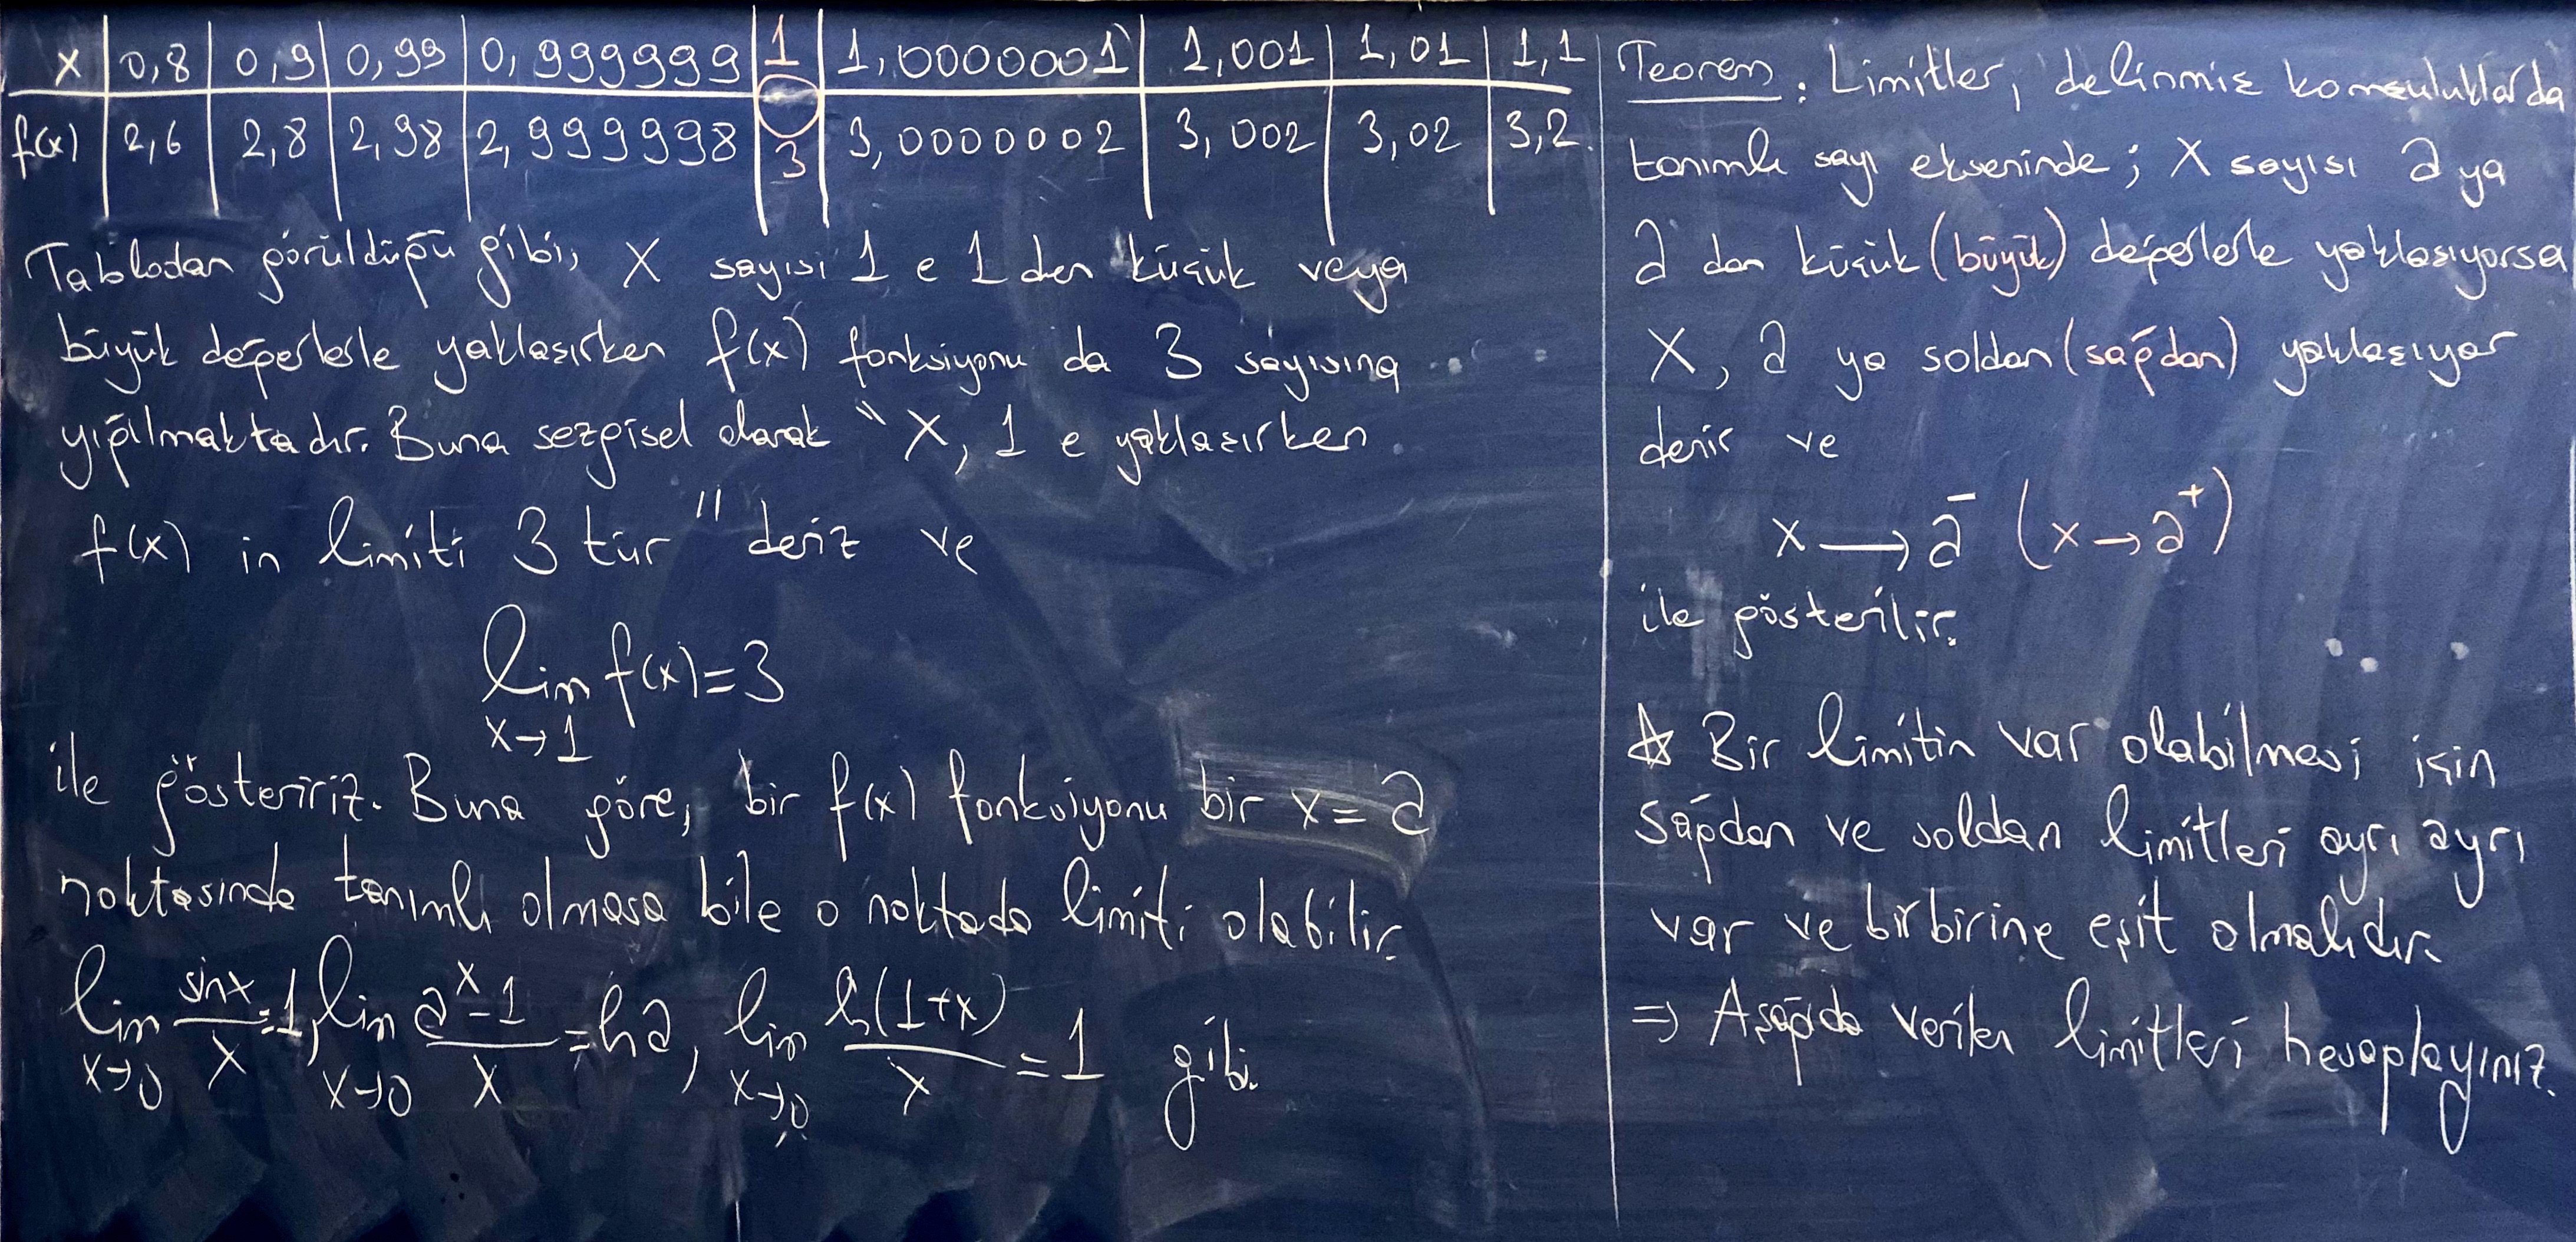 x | 0,8 | 0,9 | 0,99 | 0,999999 | 1 | 1,0000001 | 1,001 | 1,01 | 1,1
f(x) | 2,6 | 2,8 | 2,98 | 2,999998 | 3 | 3,0000002 | 3,002 | 3,02 | 3,2
Tablodan görüldüğü gibi, x sayısı 1 e 1 den küçük veya
büyük değerlerle yaklaşırken f(x) fonksiyonu da 3 sayısına
yığılmaktadır. Buna sezgisel olarak "x, 1 e yaklaşırken
f(x) in limiti 3 tür" deriz ve
lim f(x)=3
x→1
ile gösteririz. Buna göre, bir f(x) fonksiyonu bir x=a
noktasında tanımlı olmasa bile o noktada limiti olabilir.
lim x→0 sinx/x=1, lim x→0 (a^x-1)/x=lna, lim x→0 ln(1+x)/x=1 gibi.
Teorem: Limitler, delinmiş komşuluklarda
tanımlı sayı ekseninde; x sayısı a ya
a dan küçük (büyük) değerlerle yaklaşıyorsa
x, a ya soldan (sağdan) yaklaşıyor
denir ve
x→a⁻ (x→a⁺)
ile gösterilir.
☆ Bir limitin var olabilmesi için
sağdan ve soldan limitleri ayrı ayrı
var ve birbirine eşit olmalıdır.
⇒ Aşağıda verilen limitleri hesaplayınız.